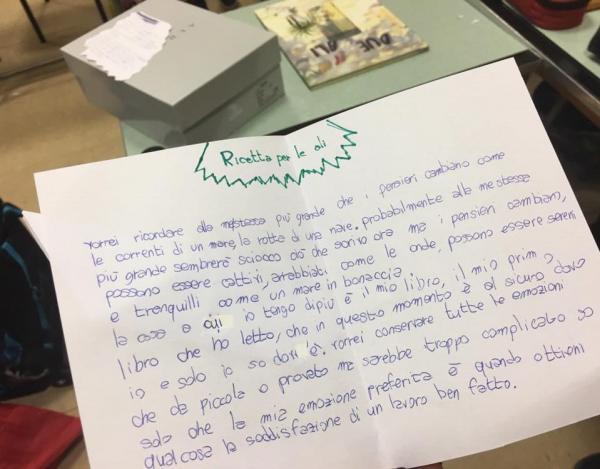 DUE ALI
Ricetta per le ali
vorrei ricordare alla mestessa più grande che i pensieri cambiano come
le correnti di un mare, la rotta di una nave. probabilmente alla me stessa
più grande sembrerà sciocco ciò che scrivo ora ma i pensieri cambiano,
possono essere cattivi, arrabbiati come le onde, possono essere sereni
e tranquilli come un mare in bonaccia.
la cosa a cui io tengo dipiù è il mio libro, il mio primo
libro che ho letto, che in questo momento è al sicuro dove
io e solo io so dov'è. vorrei conservare tutte le emozioni
che da piccola o provato ma sarebbe troppo complicato so
solo che la mia emozione preferita è quando ottieni
qualcosa la soddisfazione di un lavoro ben fatto.